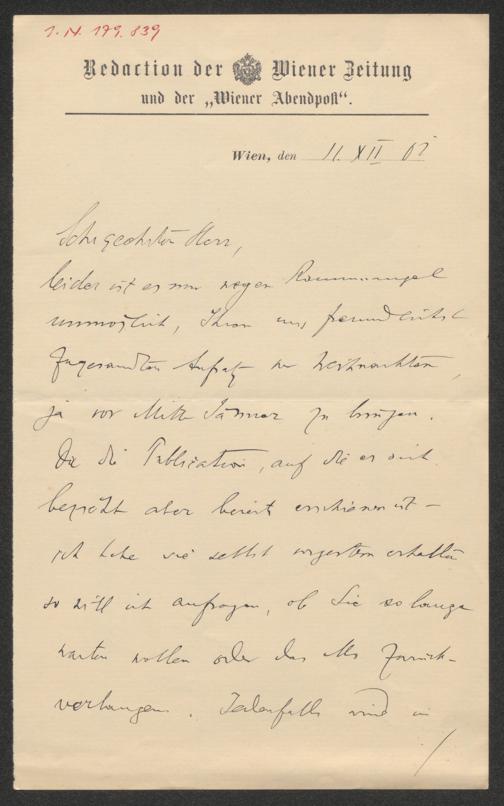 I. N. 179.839
Redaction der Wiener Zeitung
und der „Wiener Abendpost“.
Wien, den 11. XII 07
Sehr geehrter Herr,
leider ist es mir wegen Raummangel
unmöglich, Ihren uns freundlichst
zugesandten Aufsatz vor Weihnachten,
ja vor Mitte Jänner zu bringen.
Da die Publication, auf die er sich
bezieht aber bereits erschienen ist –
ich habe sie selbst vorgestern erhalten
so will ich anfragen, ob Sie so lange
warten wollen oder das Ms zurück-
verlangen. Jedenfalls wird in